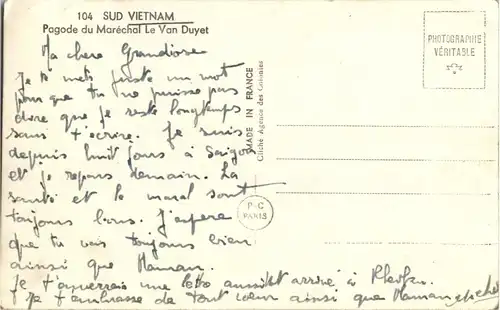 104 SUD VIETNAM
Pagode du Maréchal Le Van Duyet
PHOTOGRAPHIE
VÉRITABLE
MADE IN FRANCE
Cliché Agence des Colonies
P-C
PARIS
Ma chere Grandiose
Je te mets juste un mot
pour que tu ne puisse pas
dire que je reste longtemps
sans t'ecrire. Je suis
depuis huit jours à Saigon
et je repars demain. La
santé et le moral sont
toujours bons. J'espere
que tu vais toujours bien
ainsi que Maman.
Je t'enverrais une lettre aussitôt arrivé à
Je t'embrasse de tout coeur ainsi que Maman